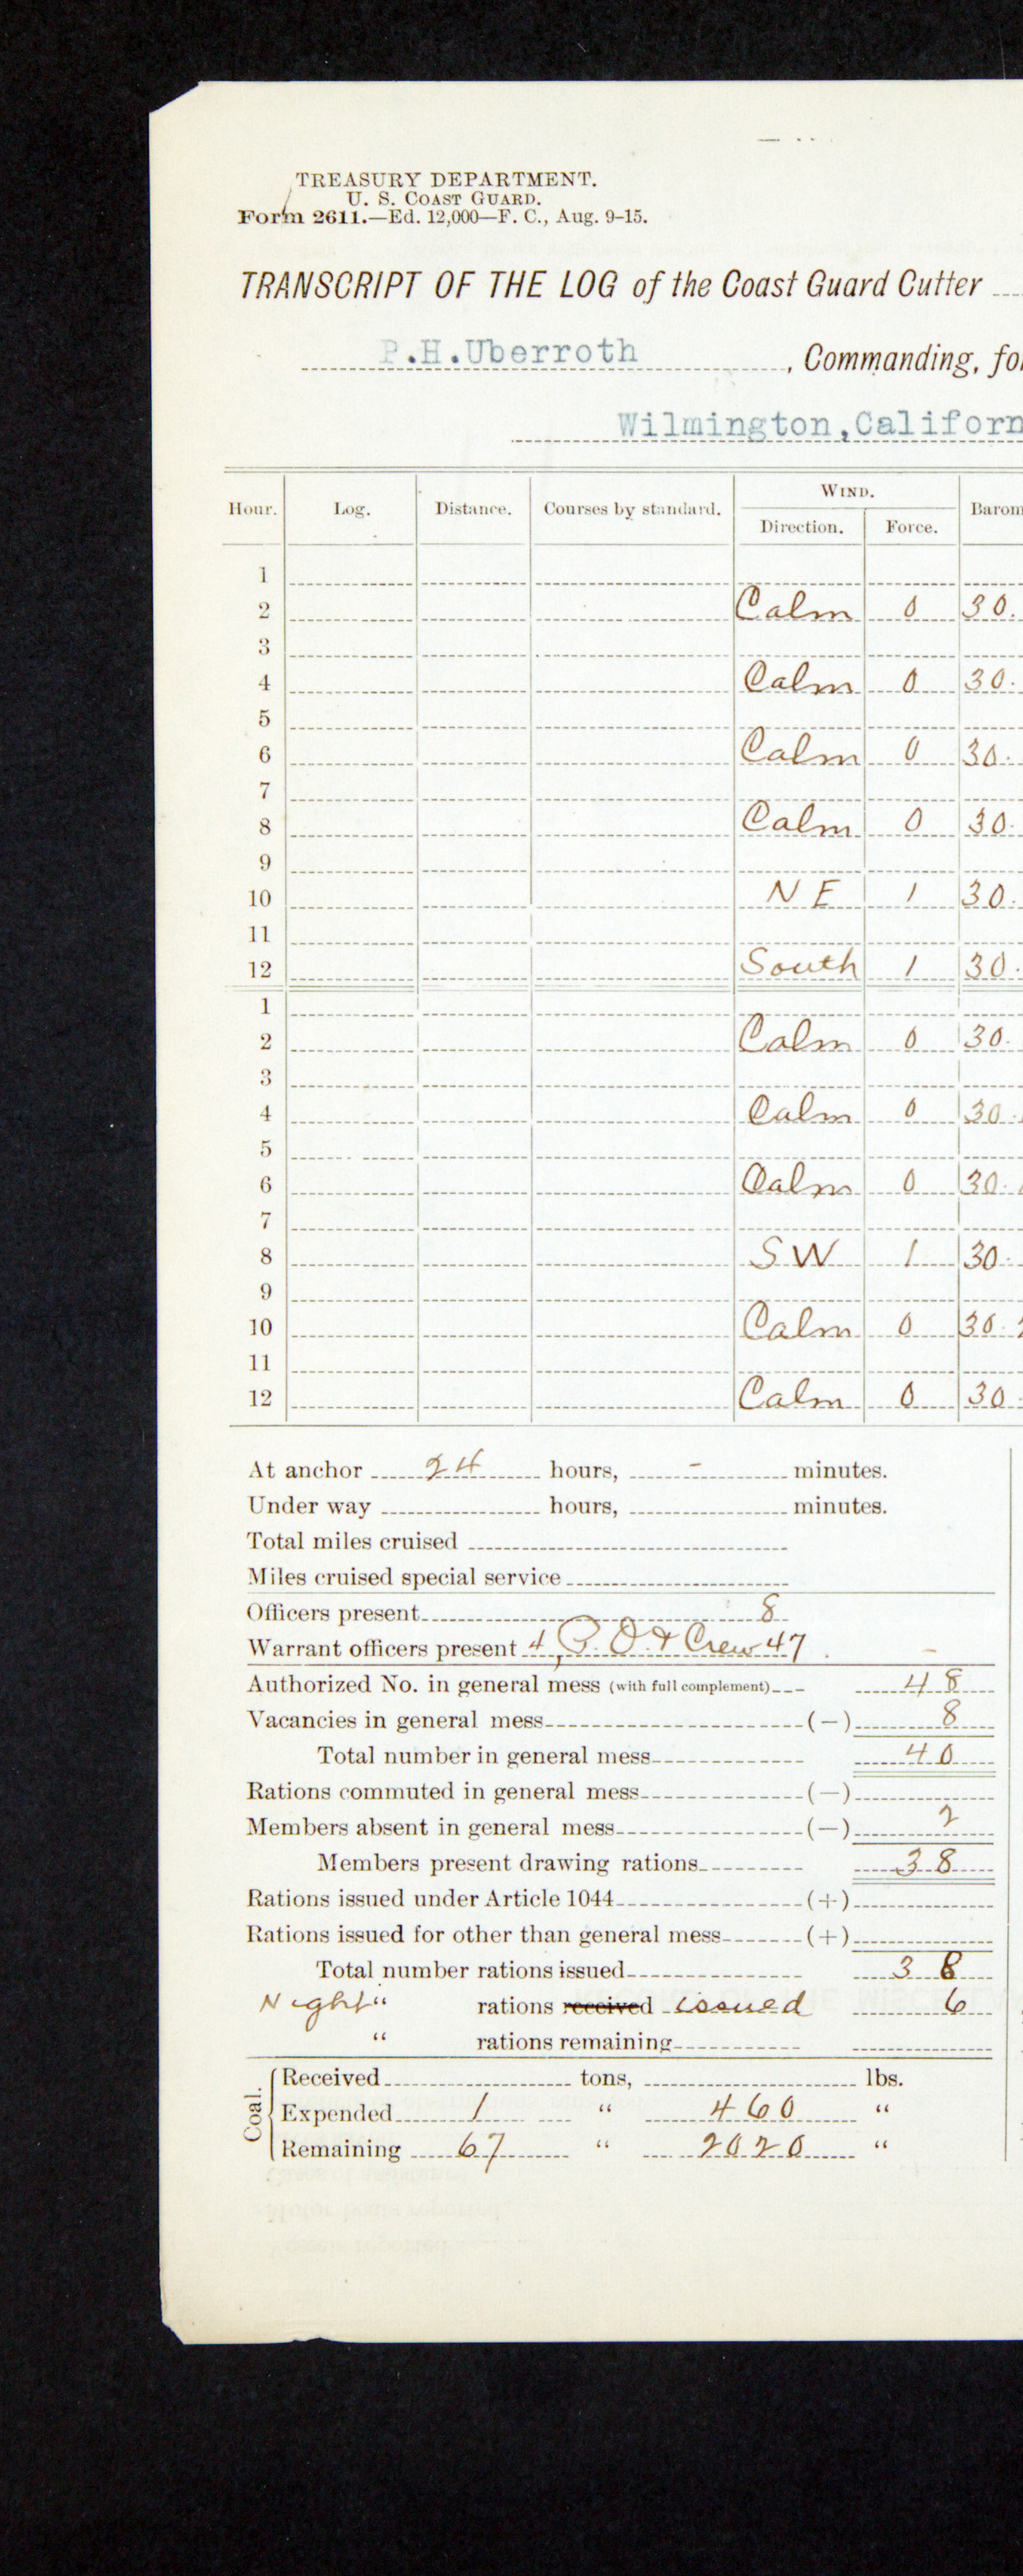 TREASURY DEPARTMENT.
U. S. COAST GUARD.
Form 2611.—Ed. 12,000—F. C., Aug. 9–15.
TRANSCRIPT OF THE LOG of the Coast Guard Cutter
P.H.Uberroth, Commanding, for
Wilmington,Californ
Hour. Log. Distance. Courses by standard. WIND. Direction. Force. Barom
1
2 Calm 0 30.
3
4 Calm 0 30.
5
6 Calm 0 30.
7
8 Calm 0 30.
9
10 NE 1 30.
11
12 South 1 30.
1
2 Calm 0 30.
3
4 Calm 0 30.
5
6 Calm 0 30.
7
8 SW 1 30.
9
10 Calm 0 30.
11
12 Calm 0 30
At anchor 24 hours, - minutes.
Under way hours, minutes.
Total miles cruised
Miles cruised special service
Officers present 8
Warrant officers present 4, P.O. & Crew 47
Authorized No. in general mess (with full complement) 48
Vacancies in general mess (—) 8
Total number in general mess 40
Rations commuted in general mess (—)
Members absent in general mess (—) 2
Members present drawing rations 38
Rations issued under Article 1044 (+)
Rations issued for other than general mess (+)
Total number rations issued 38
Night “ rations received issued 6
“ rations remaining
Coal. Received tons, lbs.
Expended 1 “ 460 “
Remaining 67 “ 2020 “